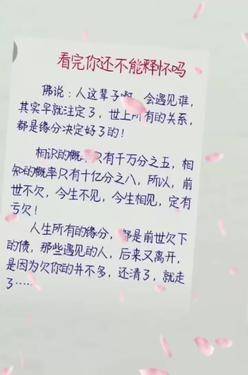 看完你还不能释怀吗
佛说：人这辈子啊，会遇见谁，
其实早就注定了，世上所有的关系，
都是缘分决定好了的！
相识的概率只有千万分之五，相
知的概率只有十亿分之八，所以，前
世不欠，今生不见，今生相见，定有
亏欠！
人生所有的缘分，都是前世欠下
的债，那些遇见的人，后来又离开，
是因为欠你的并不多，还清了，就走
了……